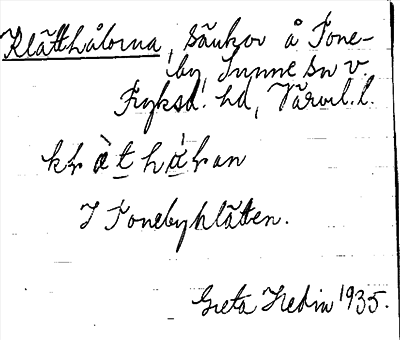 Klätthålorna, Sänkor å Tone-
by, Sunne sn v.
Fryksd. hd, Värml. l.
I Tonebyklätten.
Greta Hedin 1935.